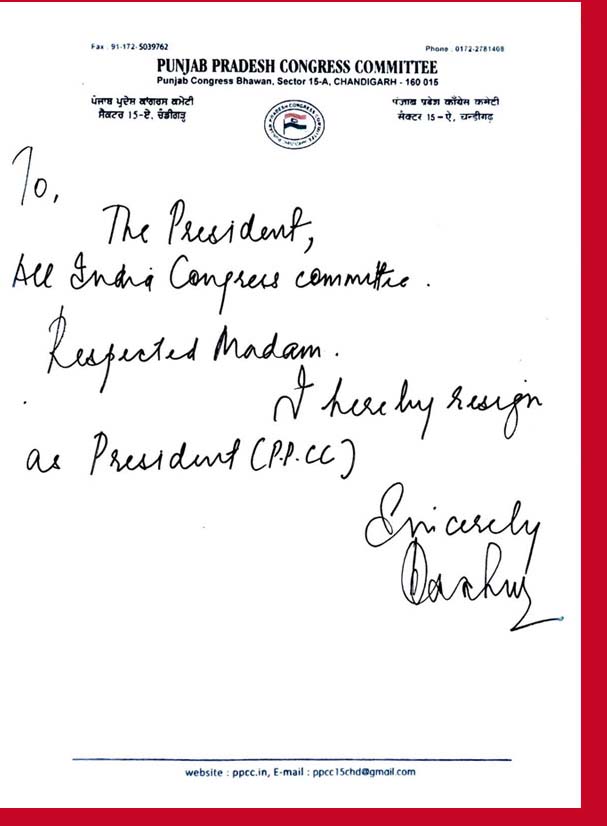 Fax . 91-172-5039762
Phone . 0172-2781408
PUNJAB PRADESH CONGRESS COMMITTEE
Punjab Congress Bhawan, Sector 15-A, CHANDIGARH - 160 015
ਪੰਜਾਬ ਪ੍ਰਦੇਸ਼ ਕਾਂਗਰਸ ਕਮੇਟੀ
ਸੈਕਟਰ 15-ਏ, ਚੰਡੀਗੜ੍ਹ
पंजाब प्रदेश काँग्रेस कमेटी
सेक्टर 15-ऐ, चन्डीगढ़
PUNJAB PRADESH CONGRESS COMMITTEE
To,
The President,
All India Congress committee .
Respected Madam .
I hereby resign
as President (P.P.CC)
Sincerely
website : ppcc.in, E-mail : ppcc15chd@gmail.com